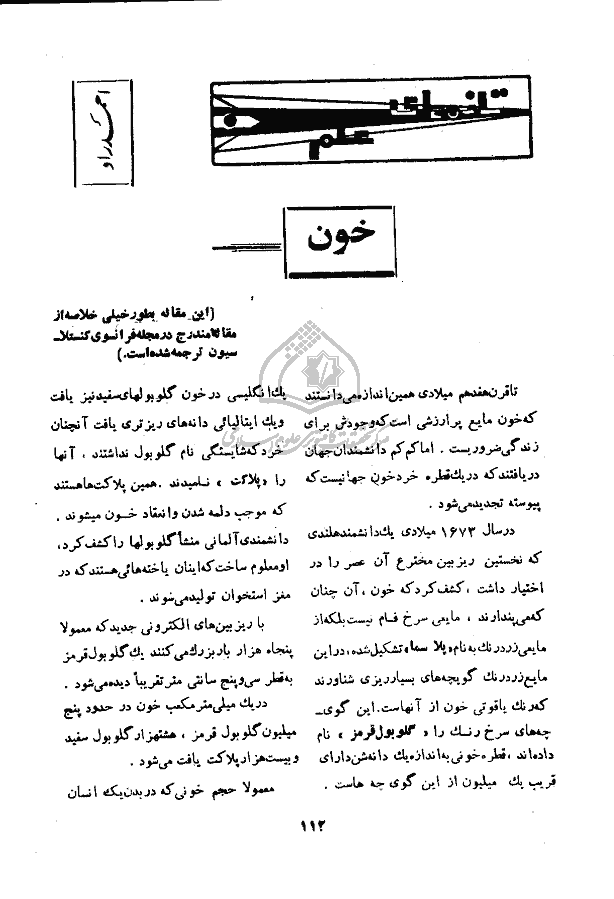 تازه‌های
علم
احمد راد
خون
(این مقاله بطور خیلی خلاصه از
مقالهٔ مندرج در مجله فرانسوی کنستلا‌ـ
سیون ترجمه شده است.)
تا قرن هفدهم میلادی همین اندازه می‌دانستند
که خون مایع پر ارزشی است که وجودش برای
زندگی ضروریست . اما کم کم دانشمندان جهان
دریافتند که در یک قطره خرد خون جهانیست که
پیوسته تجدید می‌شود .
در سال ۱۶۷۳ میلادی یک دانشمند هلندی
که نخستین ریزبین مخترع آن عصر را در
اختیار داشت ، کشف کرد که خون ، آن چنان
که می‌پندارند ، مایعی سرخ فام نیست بلکه از
مایعی زرد رنگ به نام «پلاسما» تشکیل شده ، در این
مایع زرد رنگ گویچه‌های بسیار ریزی شناورند
که رنگ یاقوتی خون از آنهاست. این گوی‌ـ
چه‌های سرخ رنگ را « گلوبول قرمز » نام
داده‌اند ، قطره خونی به اندازه یک دانه شن دارای
قریب یک میلیون از این گوی چه هاست .
یک انگلیسی در خون گلوبولهای سفید نیز یافت
و یک ایتالیائی دانه‌های ریزتری یافت آنچنان
خرد که شایستگی نام گلوبول نداشتند ، آنها
را «پلاکت » نامیدند . همین پلاکت‌ها هستند
که موجب دلمه شدن و انعقاد خون میشوند .
دانشمندی آلمانی منشأ گلوبولها را کشف کرد،
او معلوم ساخت که اینان یاخته‌هائی هستند که در
مغز استخوان تولید می‌شوند .
با ریزبین‌های الکترونی جدید که معمولا
پنجاه هزار بار بزرگ می‌کنند یک گلوبول قرمز
به قطر سی و پنج سانتی متر تقریباً دیده می‌شود .
در یک میلی متر مکعب خون در حدود پنج
میلیون گلوبول قرمز ، هشتهزار گلوبول سفید
و بیست هزار پلاکت یافت می‌شود .
معمولا حجم خونی که در بدن یک انسان
۱۱۲